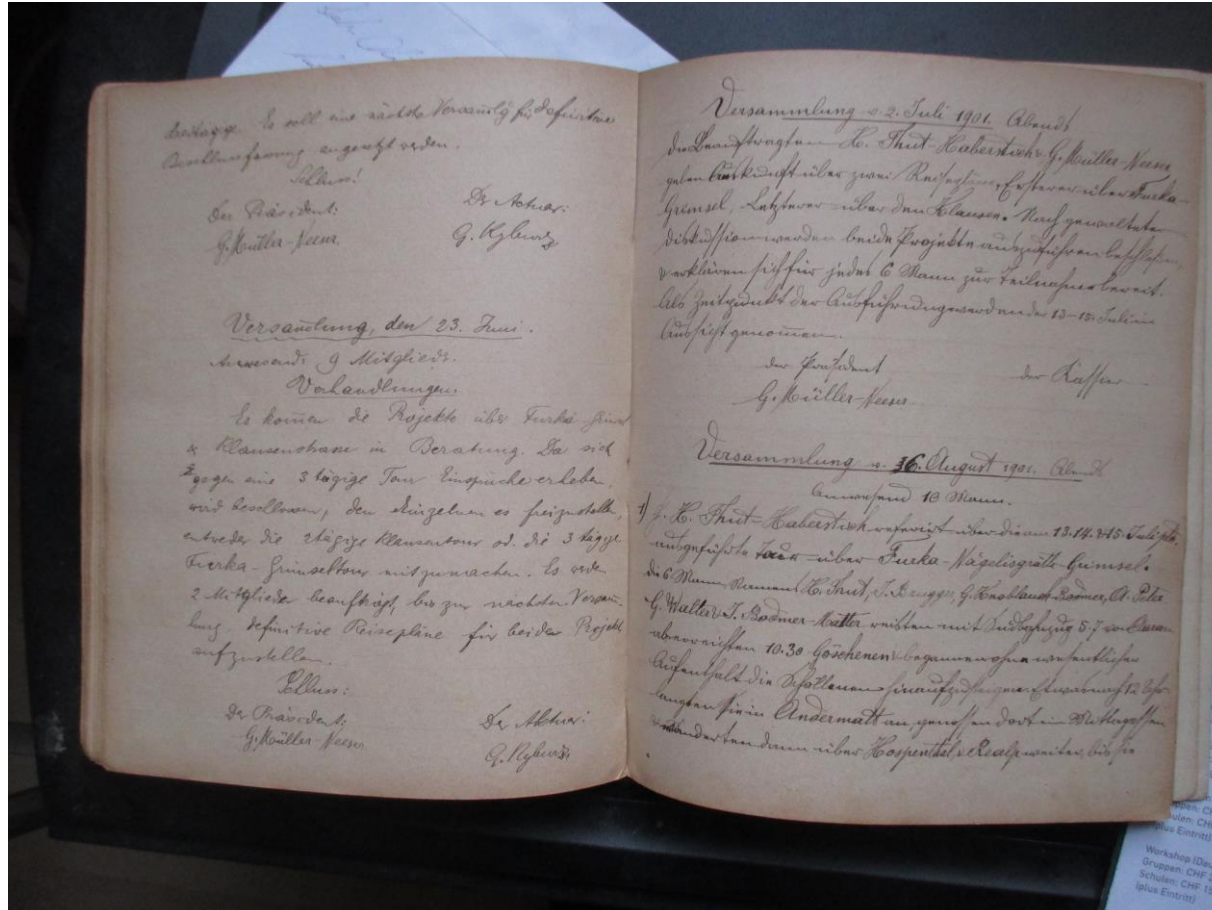 dreitägige. Es soll eine nächste Versamlg für definitive
Beschlussfassung angesetzt werden.
Schluss!
Der Präsident: Der Actuar:
G. Müller-Neeser. G. Kyburz
Versamlung, den 23. Juni.
Anwesend: 9 Mitglieder.
Verhandlungen.
Es komen die Projekte über Furka Grimsel
& Klausenstrasse in Beratung. Da sich
gegen eine 3 tägige Tour Einsprüche erheben,
wird beschlossen, den Einzelnen es freizustellen,
entweder die 2tägige Klausentour od. die 3 tägige
Furka-Grimseltour mitzumachen. Es werden
2 Mitglieder beauftragt, bis zur nächsten Versam-
lung, definitive Reisepläne für beide Projekte
aufzustellen.
Schluss:
Der Präsident: Der Aktuar:
G. Müller-Neeser G. Kyburz
Versammlung v. 2. Juli 1901. Abends
die Beauftragten H. Thut-Haberstich & G. Müller-Neeser
geben Auskunft über zwei Reisepläne, Ersterer über Furka-
Grimsel, Letzterer über den Klausen. Nach gewalteter
Diskussion werden beide Projekte auszuführen beschlossen,
& erklären sich für jedes 6 Mann zur Teilnahme bereit.
Als Zeitpunkt der Ausführung werden der 13-15 Juli in
Aussicht genommen.
der Präsident der Kassier
G. Müller-Neeser
Versammlung v. 36. August 1901. Abends
Anwesend 10 Mann.
1) H. Thut-Haberstich referirt über die am 13. 14. & 15. Juli
ausgeführte Tour über Furka-Nägelisgrätli-Grimsel.
die 6 Mann, Namens H. Thut, J. Brugger, G. Knoblauch-Bodmer, A. Peter
G. Walter & J. Bodmer-Matter reisten mit Südbahnzug 5.7 von Aarau
ab erreichten 10.30 Göschenen & begannen ohne wesentlichen
Aufenthalt die Schöllenen hinaufzusteigen. Etwas nach 12 Uhr
langten sie in Andermatt an, genossen dort ein Mittagessen
& wanderten dann über Hospenthal & Realp weiter, bis sie
ppen: CH
ulen: CHF
(plus Eintritt)
Workshop (Dau
Gruppen: CHF 2
Schulen: CHF 15
(plus Eintritt)